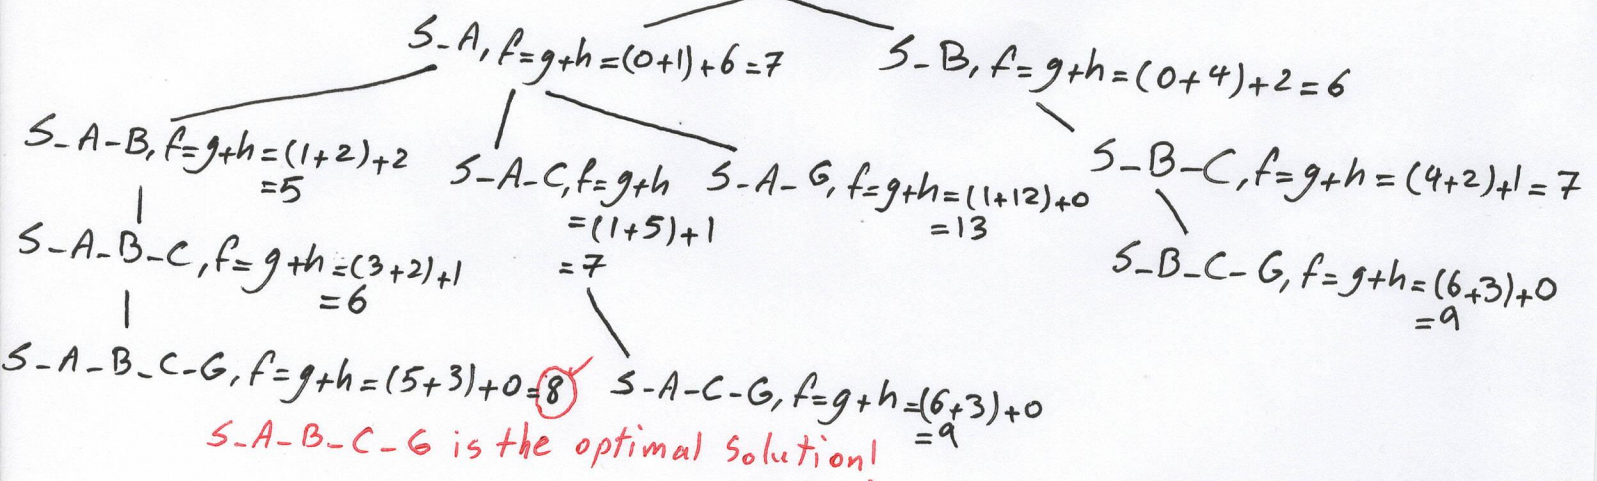 S-A, f=g+h=(0+1)+6=7
S-B, f=g+h=(0+4)+2=6
S-A-B, f=g+h=(1+2)+2
=5
S-A-C, f=g+h
=(1+5)+1
=7
S-A-G, f=g+h=(1+12)+0
=13
S-B-C, f=g+h=(4+2)+1=7
S-A-B-C, f=g+h=(3+2)+1
=6
S-B-C-G, f=g+h=(6+3)+0
=9
S-A-B-C-G, f=g+h=(5+3)+0=8
S-A-C-G, f=g+h=(6+3)+0
=9
S-A-B-C-G is the optimal solution!